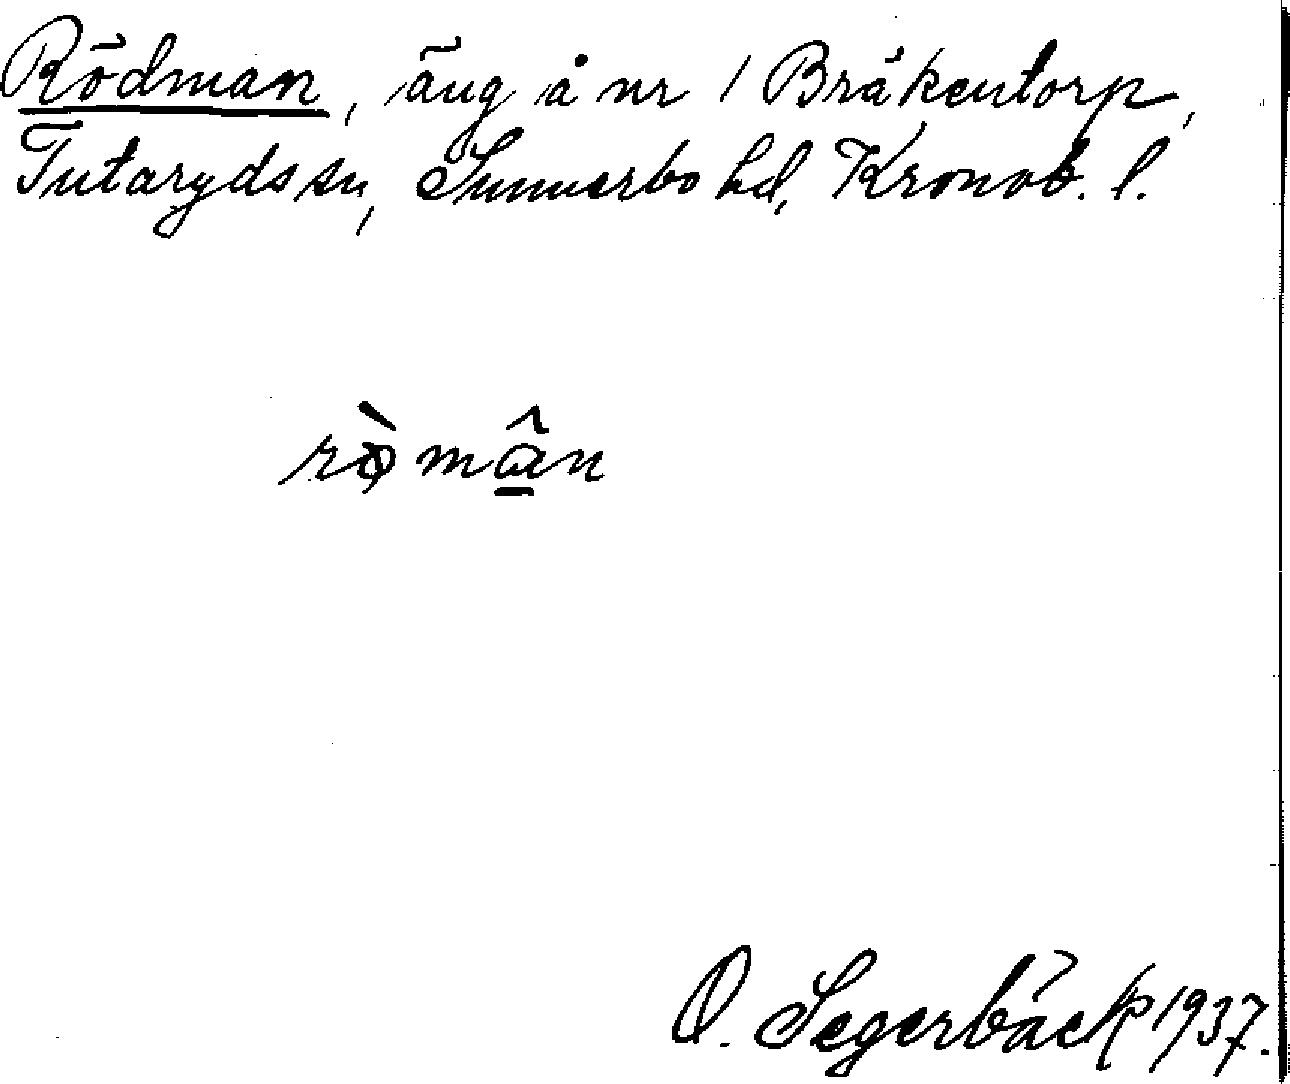 Rödman, äng å nr 1 Bräkentorp,
Tutaryds sn, Sunnerbo hd, Kronob. l.
rò̩ mâ̱n
O. Segerbäck 1937.